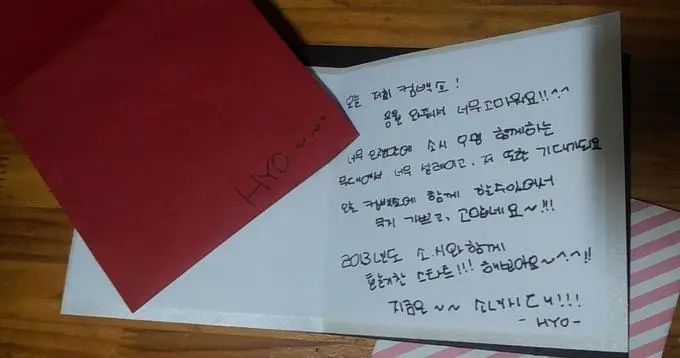 HYO~~
오늘 저희 컴백쇼!
응원 와줘서 너무 고마워요!!^^
너무 오랜만에 소시 9명 함께하는
무대여서 너무 설레이고, 저 또한 기대가되요
오늘 컴백쇼에 함께 할수있어서
무지 기쁘고, 고맙네요~!!!
2013년도 소.시와 함께
힘찬 스타트!!! 해보아요~^^!!
지금은~~ 소녀시대!!!
-HYO-